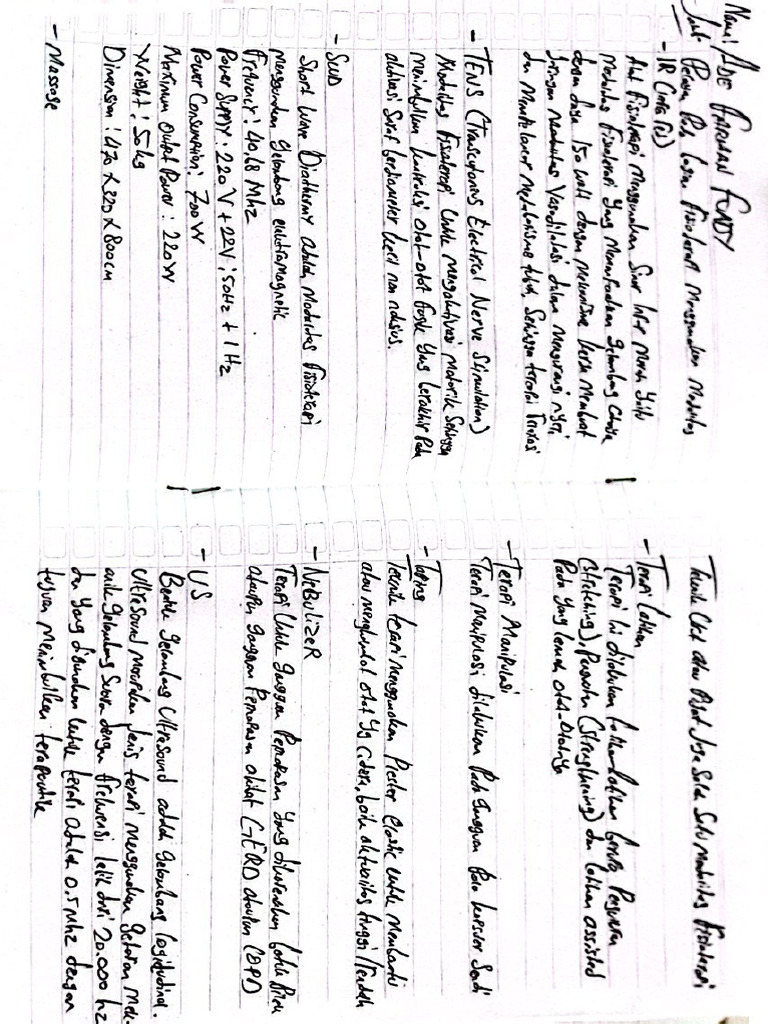 Nama: ADE FARDHAN FONDY
- IR (Infra Red)
Alat Fisioterapi Menggunakan Sinar Infra Merah yaitu
Modalitas Fisioterapi Yang Memanfaatkan gelombang Cahaya
dengan daya 150 watt dengan Mekanisme kerja Membuat
jaringan Vasodilatasi dalam mengurangi nyeri
dan Memperlancar Metabolisme tubuh, Sehingga
- TENS (Transcutaneus Electrical Nerve Stimulation)
Modalitas Fisioterapi Untuk mengaktivasi motorik Sehingga
menimbulkan kontraksi otot-otot yang berakhir Pada
aktivasi Saraf berdiameter kecil non noksius.
- SWD
Short Wave Diathermy adalah Modalitas Fisioterapi
menggunakan gelombang elektromagnetic
Frekuensi : 40.68 MHz
Power Supply : 220 V + 22V ; 50Hz + 1 Hz
Power Consumtion : 700 W
Maximum Output Power : 220W
Weight : 50kg
Dimension : 470 x 320 x 800cm
- Massage
Teknik atau Pijat juga Salah Satu modalitas Fisioterapi
- Terapi Latihan
Terapi ini dilakukan
(Stretching), Penguatan (Strengthening) dan latihan assisted
Pada Yang lemah otot-ototnya
- Terapi Manipulasi
Terapi manipulasi dilakukan Pada gangguan Sendi
- Taping
Teknik terapi menggunakan Plester Elastic untuk Membantu
atau menghambat otot Yg cidera, baik aktivitas tinggi / rendah
- NEBULIZER
Terapi Untuk gangguan Pernapasan Yang
ataupun gangguan Pernapasan akibat GERD ataupun COPD
- US
gelombang Ultrasound adalah gelombang longitudinal.
Ultrasound merupakan jenis terapi menggunakan getaran Meka-
anik gelombang Suara dengan Frekuensi lebih dari 20.000 hz
dan Yang digunakan Untuk terapi adalah 0.5 Mhz dengan
tujuan menimbulkan terapeutik